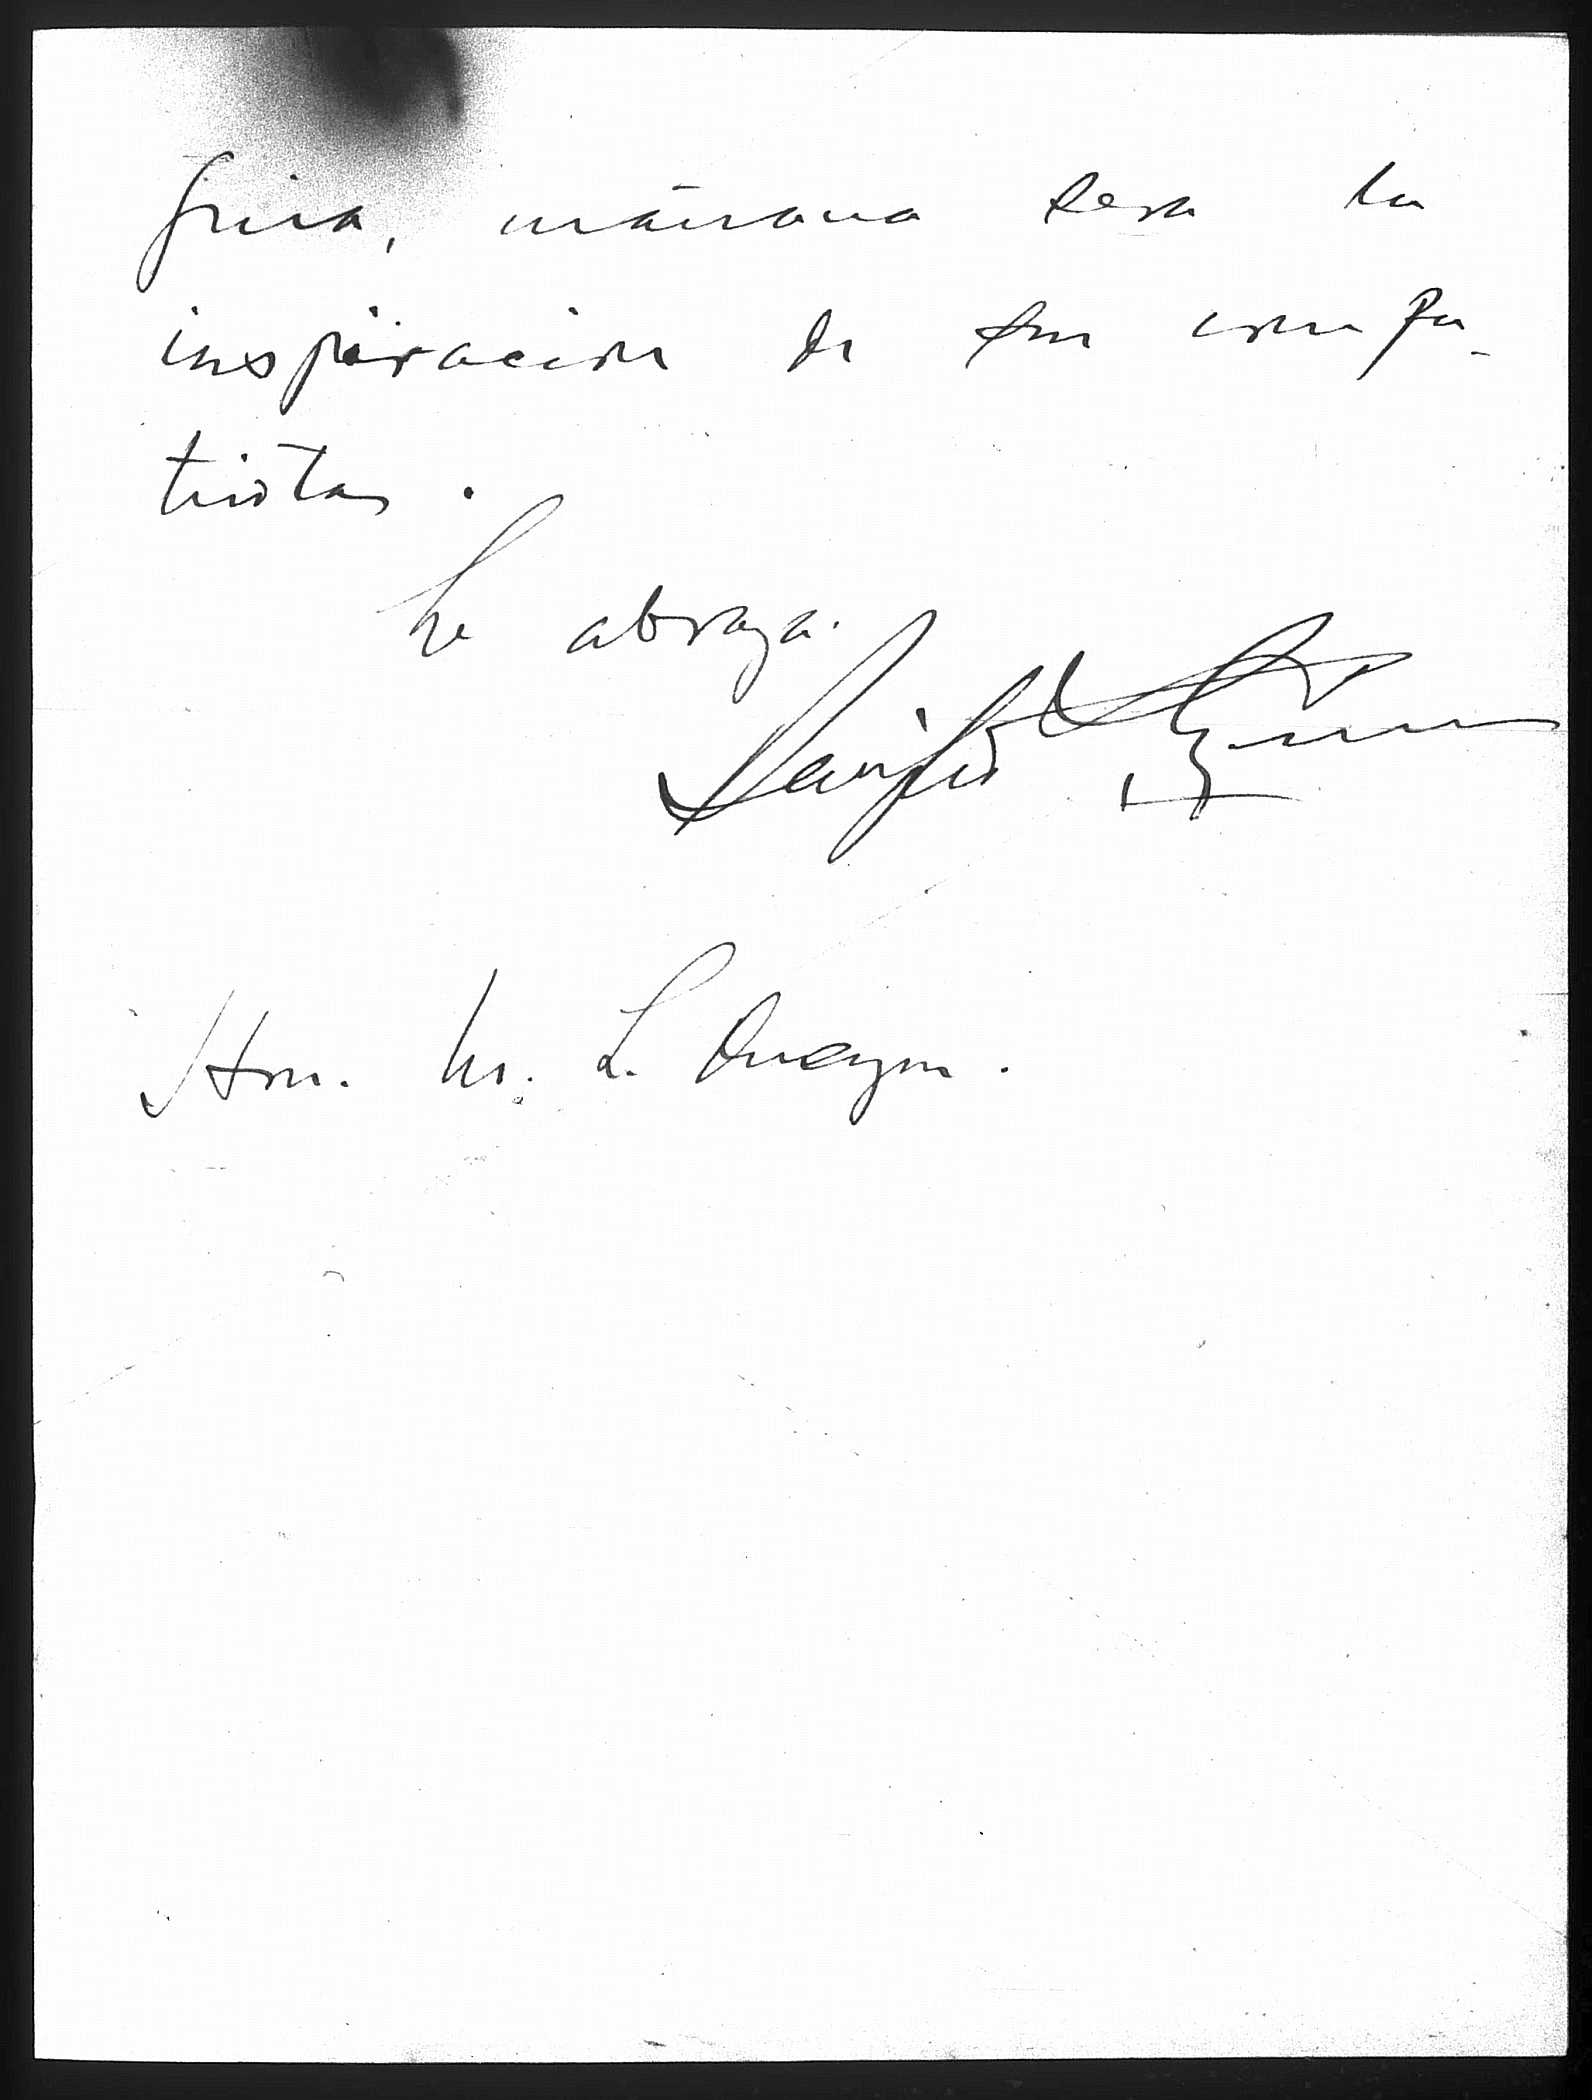 guia, mañana sera la
inspiracion de sus compa-
triotas.
Le abraza.
Hon. M. L. Quezon.